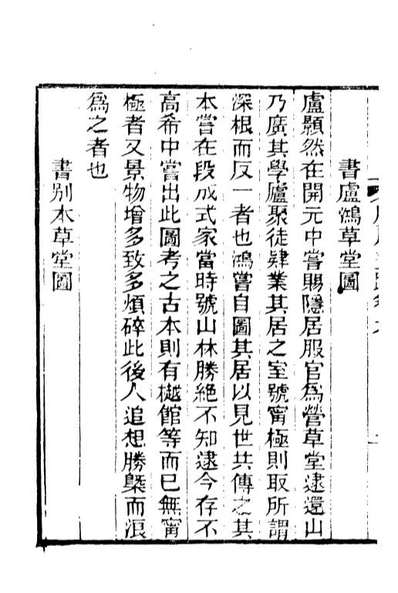 書盧鴻草堂圖
盧顥然在開元中嘗賜隱居服官為營草堂逮還山
乃廣其學廬聚徒肄業其居之室號甯極則取所謂
深根而反一者也鴻嘗自圖其居以見世共傳之其
本嘗在段成式家當時號山林勝絶不知逮今存不
高希中嘗出此圖考之古本則有樾館等而已無甯
極者又景物增多致多煩碎此後人追想勝槩而浪
為之者也
書别本草堂圖